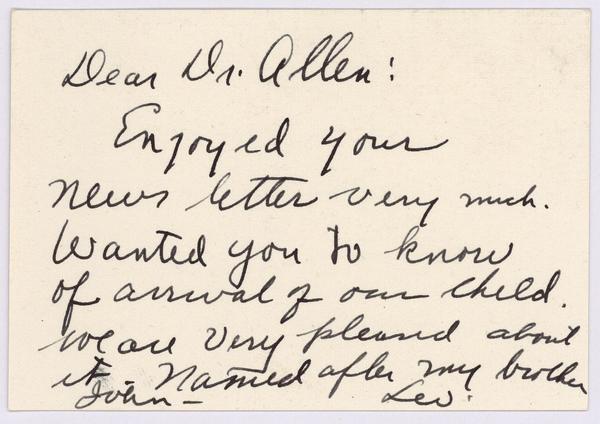 Dear Dr. Allen:
Enjoyed your
news letter very much.
Wanted you to know
of arrival of our child.
We are very pleased about
it - Named after my brother
John - Leo.